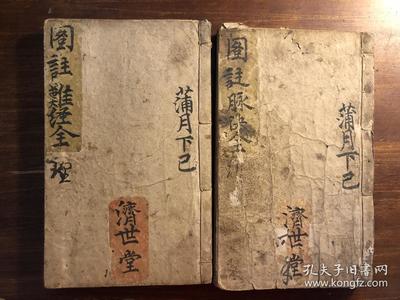 圖註難經全
理
蒲月下已
濟世堂
圖註脉訣全
蒲月下已
濟世堂
孔夫子旧书网
www.kongfz.com